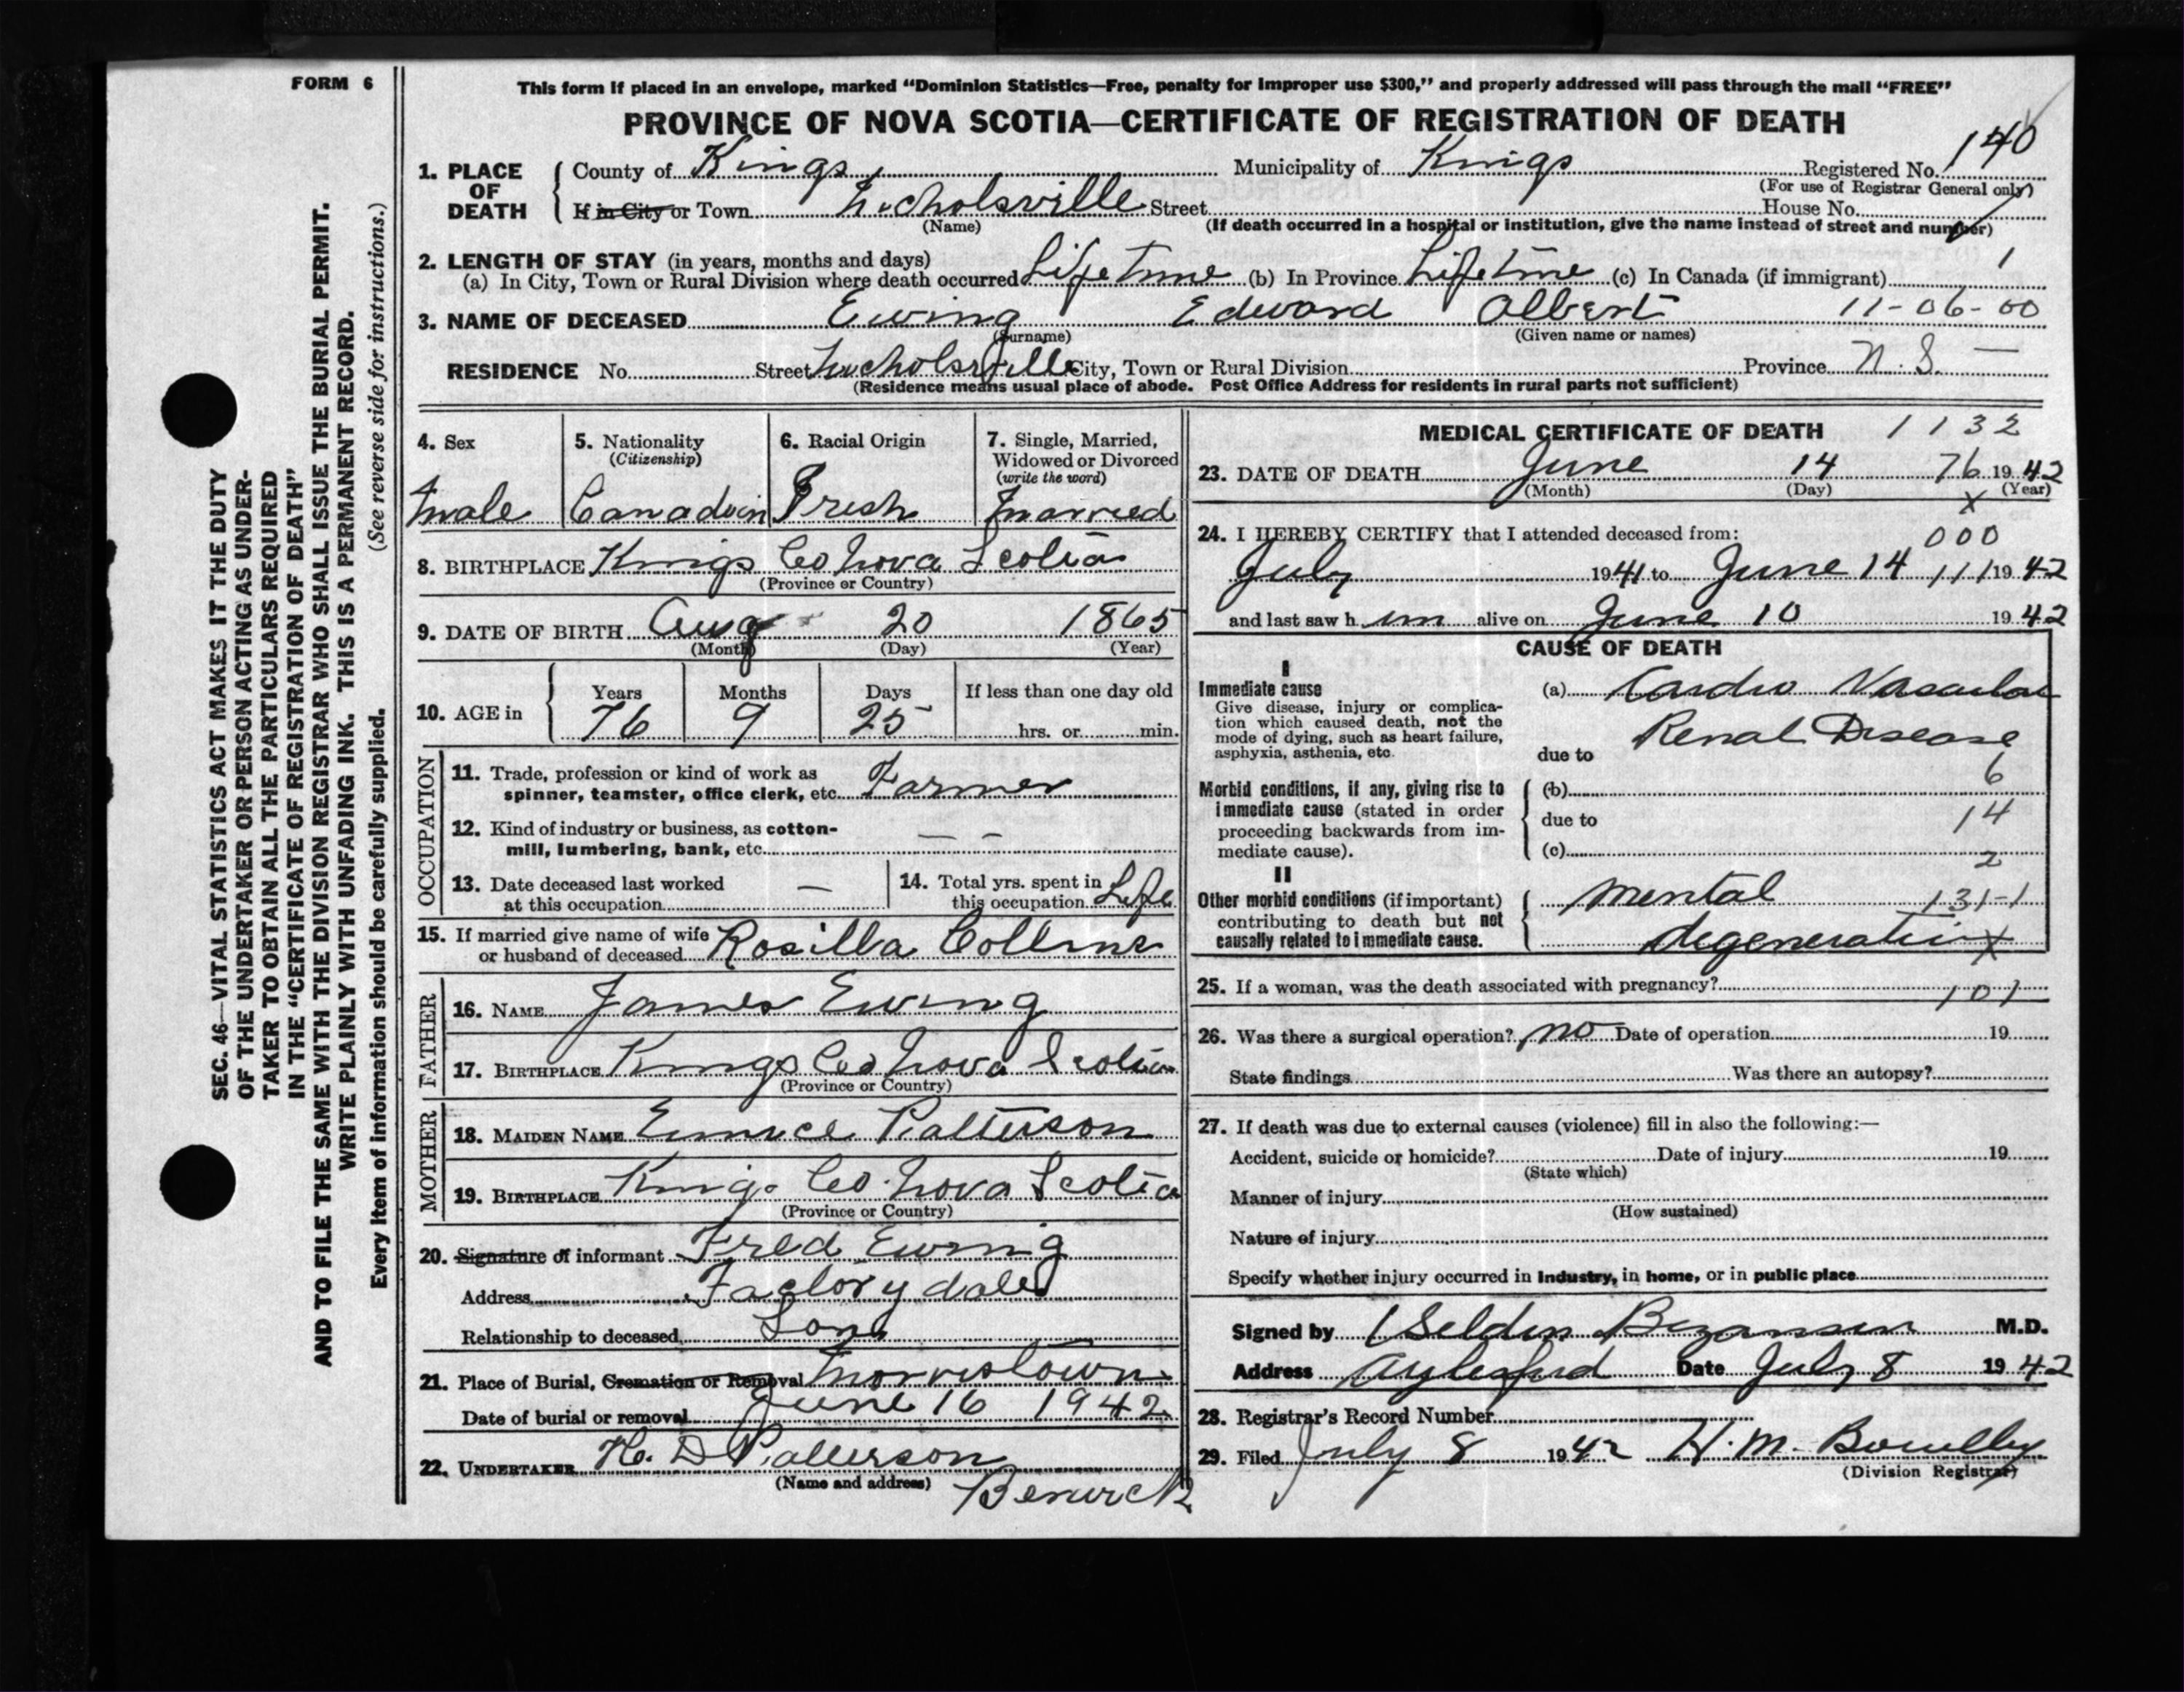 FORM 6
This form if placed in an envelope, marked "Dominion Statistics—Free, penalty for improper use $300," and properly addressed will pass through the mail "FREE"
PROVINCE OF NOVA SCOTIA—CERTIFICATE OF REGISTRATION OF DEATH
1. PLACE OF DEATH County of Kings Municipality of Kings Registered No. 140
(For use of Registrar General only)
If in City or Town Nicholsville Street House No.
(Name) (If death occurred in a hospital or institution, give the name instead of street and number)
2. LENGTH OF STAY (in years, months and days)
(a) In City, Town or Rural Division where death occurred Life time (b) In Province Life time (c) In Canada (if immigrant) 1
3. NAME OF DECEASED Ewing Edward Albert 11-06-00
(Surname) (Given name or names)
RESIDENCE No. Street Nicholsville City, Town or Rural Division Province N.S. —
(Residence means usual place of abode. Post Office Address for residents in rural parts not sufficient)
4. Sex
Male
5. Nationality
(Citizenship)
Canadian
6. Racial Origin
Irish
7. Single, Married,
Widowed or Divorced
(write the word)
Married
8. BIRTHPLACE Kings Co Nova Scotia
(Province or Country)
9. DATE OF BIRTH Aug 20 1865
(Month) (Day) (Year)
10. AGE in Years Months Days If less than one day old
76 9 25 hrs. or min.
OCCUPATION
11. Trade, profession or kind of work as
spinner, teamster, office clerk, etc. Farmer
12. Kind of industry or business, as cotton-
mill, lumbering, bank, etc. — —
13. Date deceased last worked
at this occupation —
14. Total yrs. spent in
this occupation Life
15. If married give name of wife
or husband of deceased Rosilla Collins
FATHER
16. NAME James Ewing
17. BIRTHPLACE Kings Co Nova Scotia
(Province or Country)
MOTHER
18. MAIDEN NAME Eunice Patterson
19. BIRTHPLACE Kings Co. Nova Scotia
(Province or Country)
20. Signature of informant Fred Ewing
Address Factorydale
Relationship to deceased Son
21. Place of Burial, Cremation or Removal Morristown
Date of burial or removal June 16 1942
22. UNDERTAKER H. D Patterson
(Name and address) Berwick
MEDICAL CERTIFICATE OF DEATH 1132
23. DATE OF DEATH June 14 76 1942
(Month) (Day) (Year)
x
24. I HEREBY CERTIFY that I attended deceased from:
000
July 1941 to June 14 111 1942
and last saw h im alive on June 10 1942
CAUSE OF DEATH
I
Immediate cause
Give disease, injury or complica-
tion which caused death, not the
mode of dying, such as heart failure,
asphyxia, asthenia, etc.
(a) Cardio Vascular
Renal Disease
due to
6
Morbid conditions, if any, giving rise to
immediate cause (stated in order
proceeding backwards from im-
mediate cause).
(b)
due to 14
(c)
2
II
Other morbid conditions (if important)
contributing to death but not
causally related to immediate cause.
Mental 131-1
degeneration
x
25. If a woman, was the death associated with pregnancy? 101
26. Was there a surgical operation? no Date of operation 19
State findings Was there an autopsy?
27. If death was due to external causes (violence) fill in also the following:—
Accident, suicide or homicide? Date of injury 19
(State which)
Manner of injury
(How sustained)
Nature of injury
Specify whether injury occurred in industry, in home, or in public place
Signed by Selden Bezanson M.D.
Address Aylesford Date July 8 1942
28. Registrar's Record Number
29. Filed July 8 1942 H. M.
(Division Registrar)
SEC. 46—VITAL STATISTICS ACT MAKES IT THE DUTY
OF THE UNDERTAKER OR PERSON ACTING AS UNDER-
TAKER TO OBTAIN ALL THE PARTICULARS REQUIRED
IN THE "CERTIFICATE OF REGISTRATION OF DEATH"
AND TO FILE THE SAME WITH THE DIVISION REGISTRAR WHO SHALL ISSUE THE BURIAL PERMIT.
WRITE PLAINLY WITH UNFADING INK. THIS IS A PERMANENT RECORD.
(See reverse side for instructions.)
Every item of information should be carefully supplied.